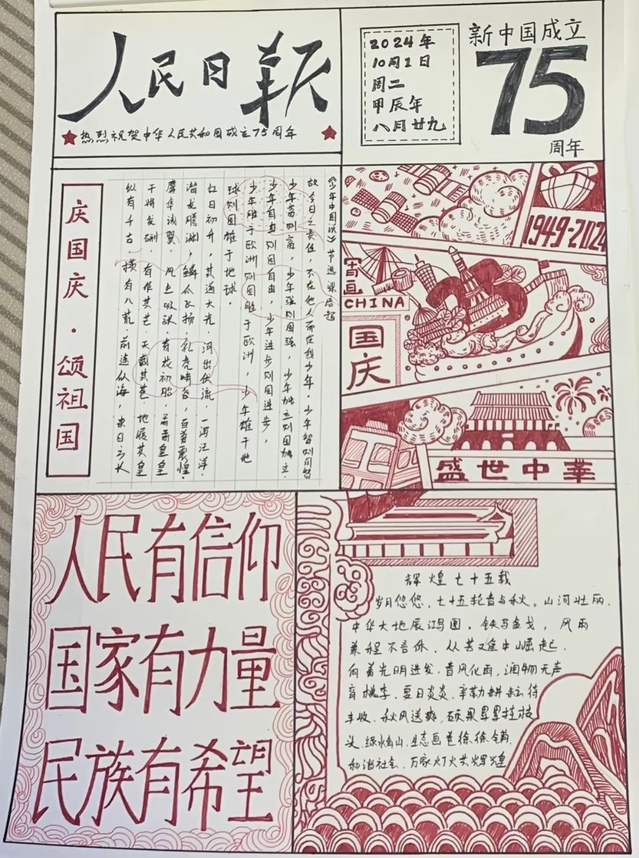 人民日报
热烈祝贺中华人民共和国成立75周年
2024年
10月1日
周二
甲辰年
八月廿九
新中国成立
75
周年
庆国庆·颂祖国
《少年中国说》节选 梁启超
故今日之责任，不在他人，而在我少年。少年智则国智，
少年富则富，少年强则国强，少年独立则国独立，
少年自由则国自由，少年进步则国进步，
少年胜于欧洲则国胜于欧洲，少年雄于地
球则国雄于地球。
红日初升，其道大光。河出伏流，一泻汪洋。
潜龙腾渊，鳞爪飞扬。乳虎啸谷，百兽震惶。
鹰隼试翼，风尘吸张。奇花初胎，矞矞皇皇
干将发硎，有作其芒。天戴其苍，地履其黄
纵有千古，横有八荒。前途似海，来日方长
1949-2024
CHINA
国庆
盛世中华
人民有信仰
国家有力量
民族有希望
辉煌七十五载
岁月悠悠，七十五轮春与秋。山河壮丽，
中华大地展鸿图。铁马金戈，风雨
兼程不言休。从苦难中崛起，
向着光明进发。春风化雨，润物无声
育桃李。夏日炎炎，辛勤耕耘待
丰收。秋风送爽，硕果累累挂枝
头。绿水青山，生态画卷徐徐
和谐社会，万家灯火共辉煌